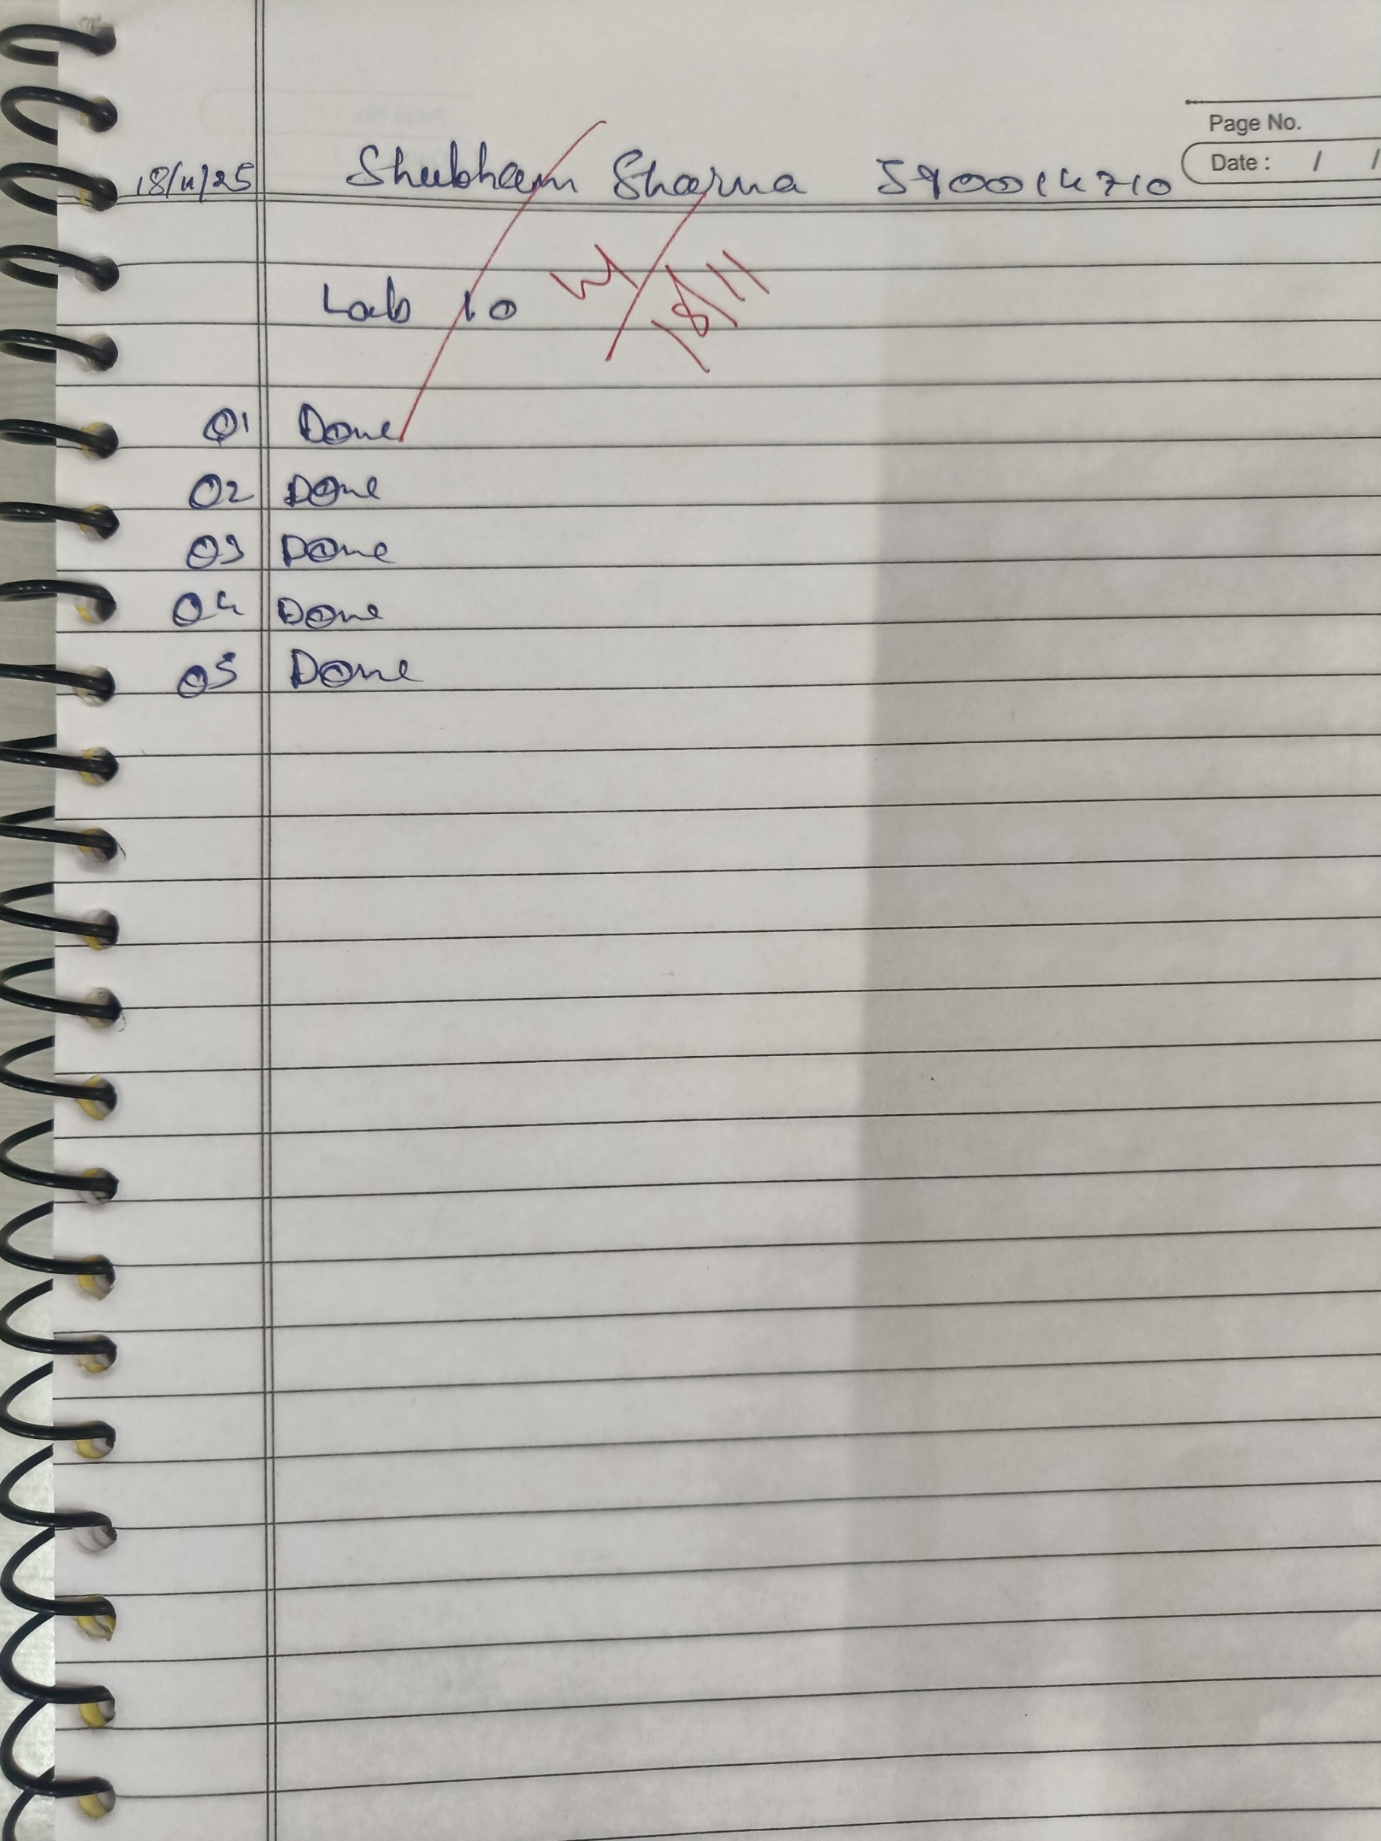 Page No.
Date : / /
18/11/25 Shubham Sharma 590014710
Lab 10
18/11
Q1 Done
Q2 Done
Q3 Done
Q4 Done
Q5 Done